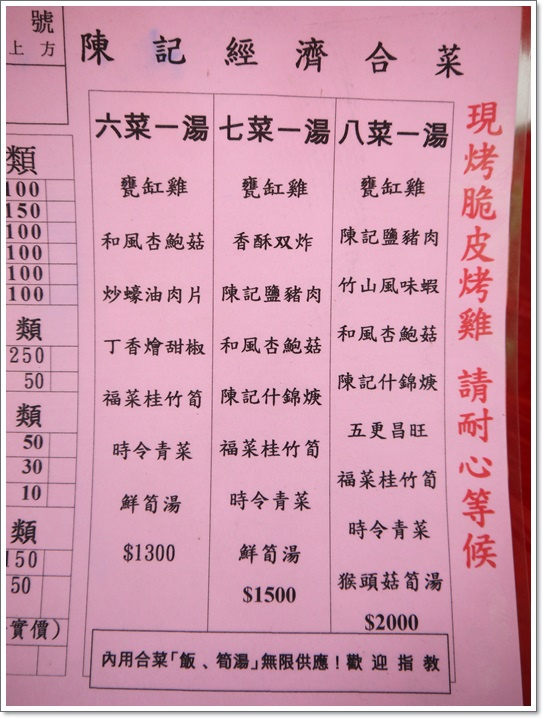 號
上方
類
100
150
100
100
100
100
類
250
50
類
50
30
10
類
150
50
實價)
陳記經濟合菜
六菜一湯
甕缸雞
和風杏鮑菇
炒蠔油肉片
丁香燴甜椒
福菜桂竹筍
時令青菜
鮮筍湯
$1300
七菜一湯
甕缸雞
香酥双炸
陳記鹽豬肉
和風杏鮑菇
陳記什錦焿
福菜桂竹筍
時令青菜
鮮筍湯
$1500
八菜一湯
甕缸雞
陳記鹽豬肉
竹山風味蝦
和風杏鮑菇
陳記什錦焿
五更昌旺
福菜桂竹筍
時令青菜
猴頭菇筍湯
$2000
內用合菜「飯、筍湯」無限供應！歡迎指教
現烤脆皮烤雞 請耐心等候